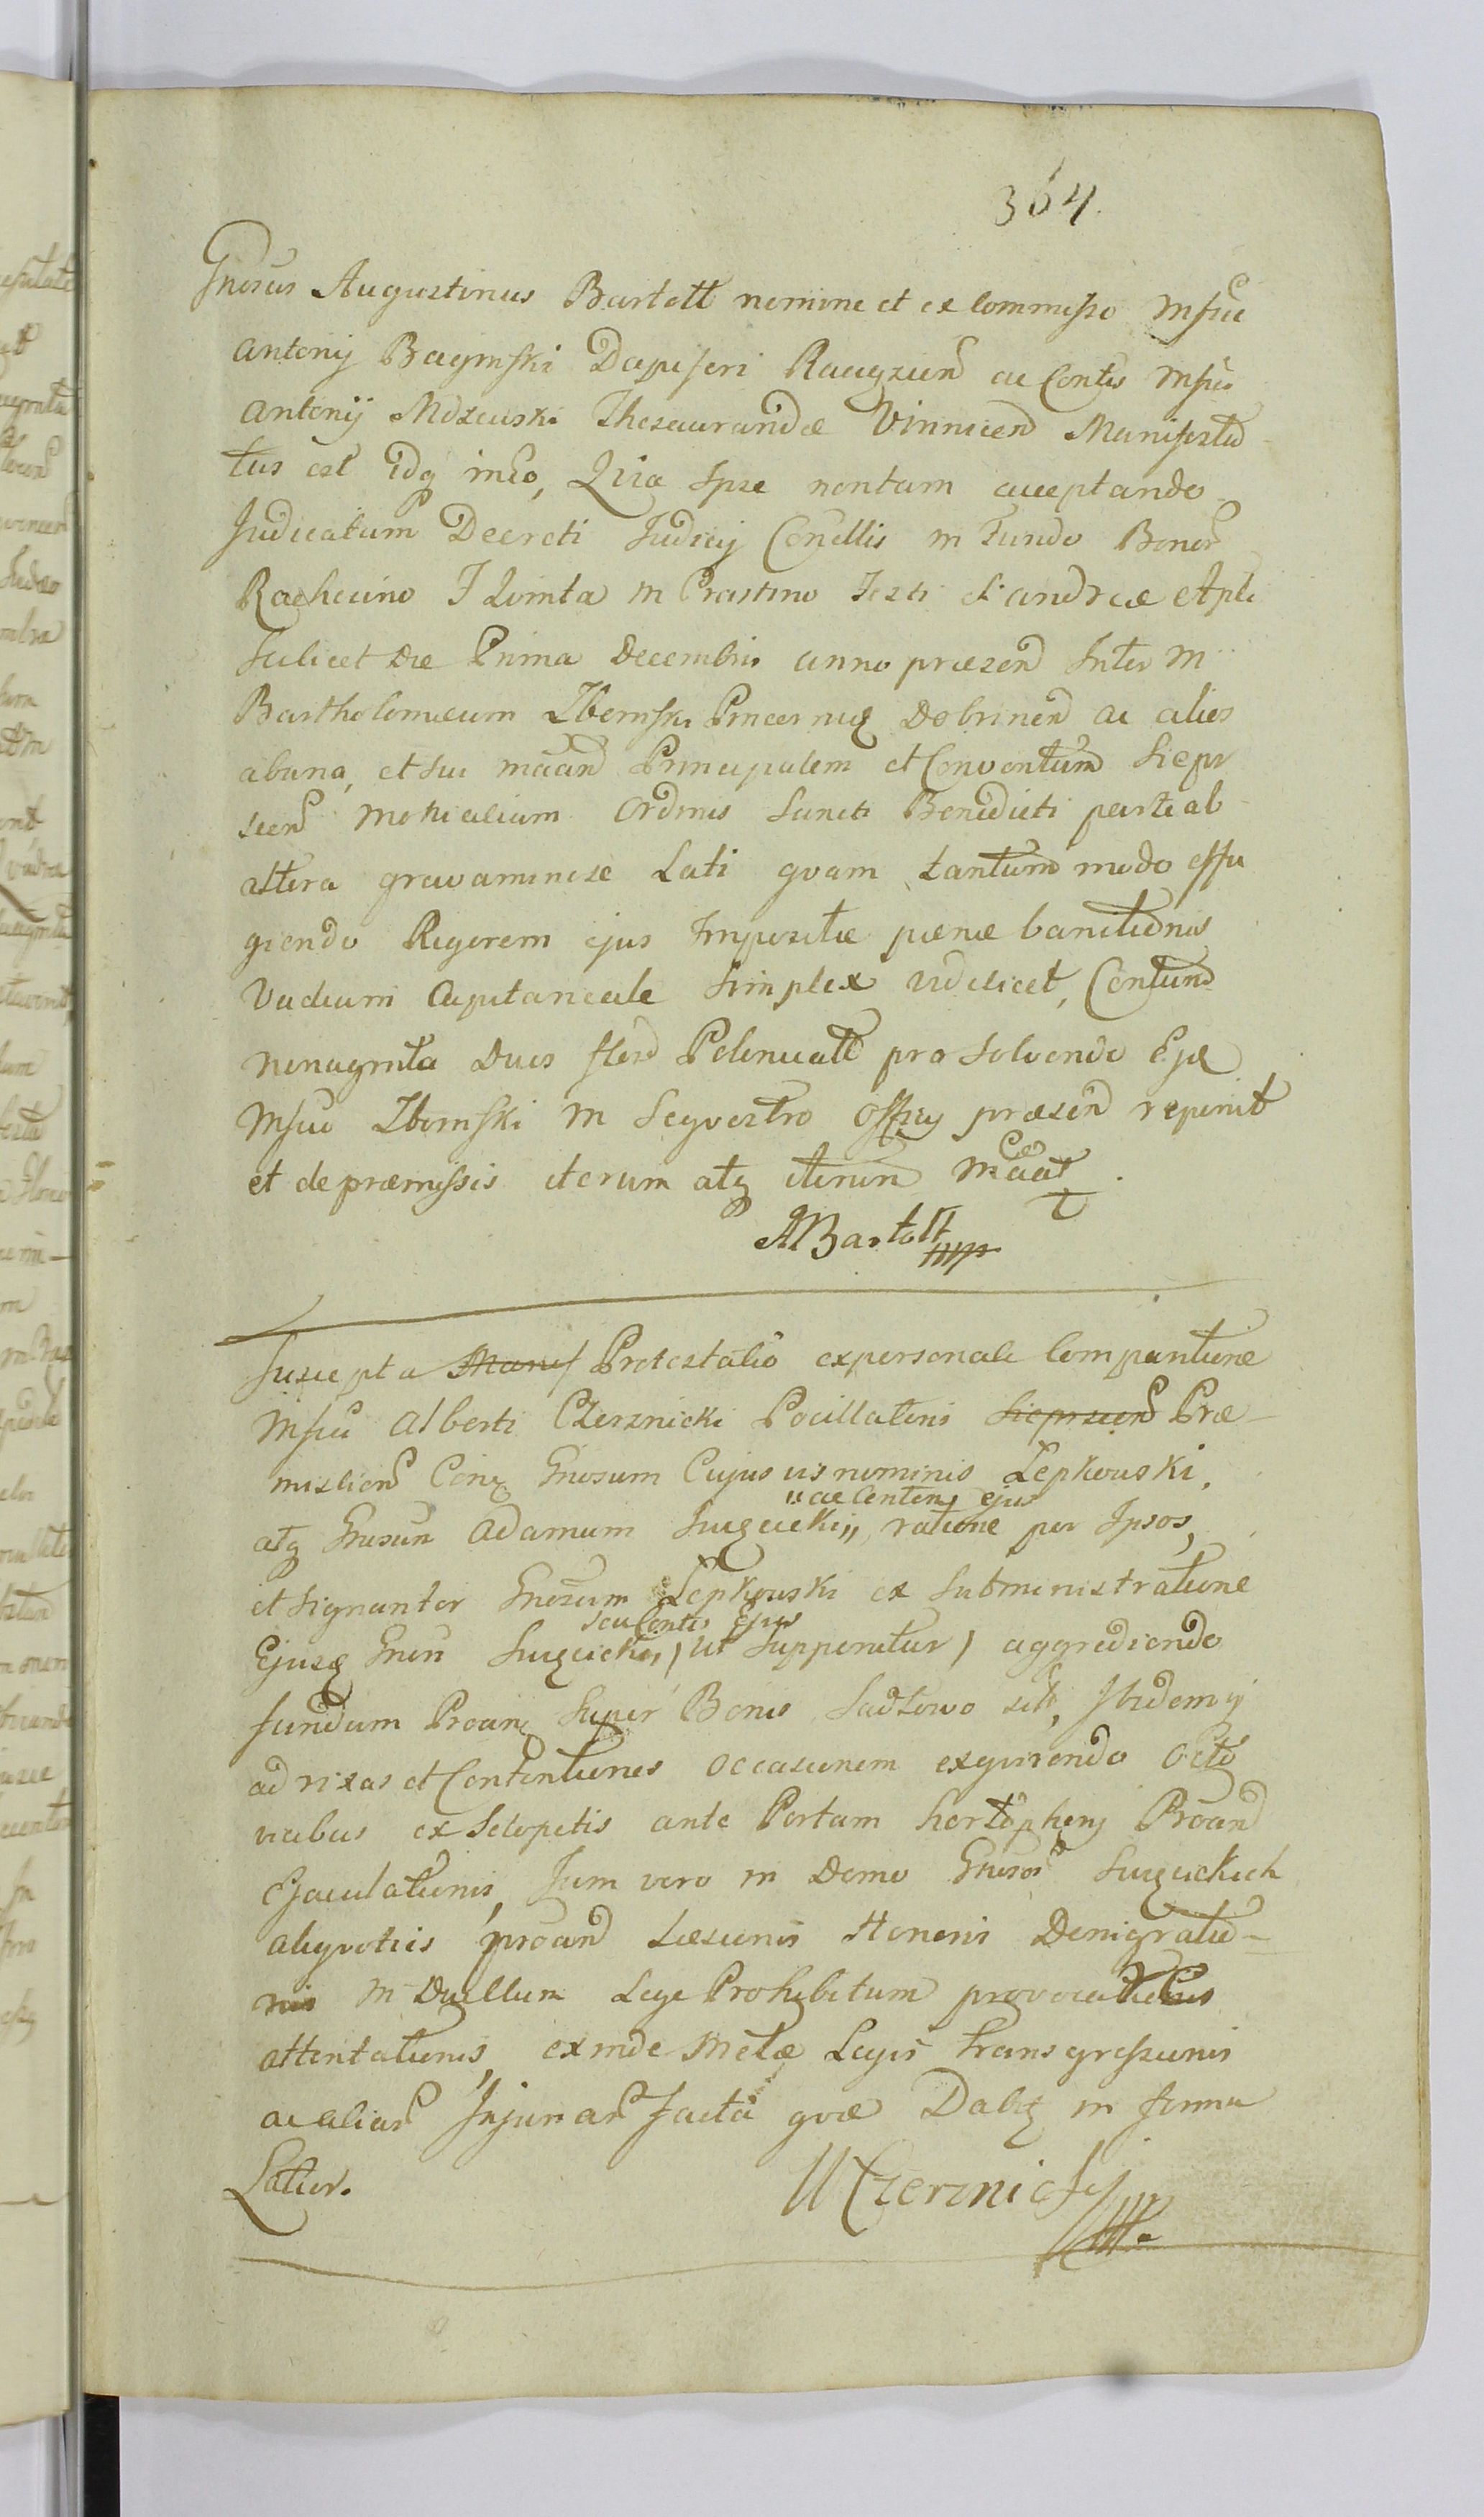 364.
Gnosus Augustinus Bartolt nomine et ex Commisso Mfici
Antonij Baginski Dapiferi Raciązien ac Contis Mfici
Antonij Mdzewski Thesaurandæ Vinnicen Manifesta
tus est idq ineo, Quia Ipse nontam acceptando
Judicatum Decreti Judicij Conellis in Fundo Bonor
Rachcino F Quinta in Crastino Festi S. Andreæ Apli
Scilicet die Prima Decembris anno præsen Inter M
Bartholomæum Zboinski Pincernæ Dobrinen ac alios
abuna, et sui maand Principalem et Conventum Sierp
scen Monialium Ordinis Sancti Benedicti parte ab
altera gravaminose Lati qvam tantum modo effu
giendo Rigorem ejus Impositæ pænæ banitionis
Vadium Capitaneale Simplex videlicet, Centum
nonaginta Duos flen Polonicatt pro Solvendo Ejd
Mfico Zboinski in Seqvestro Officij præsen reponit
et de præmissis iterum atq iterum maat.
ABartolt mp
Suscepta Manif Protestatio expersonali Comparitione
Mfici Alberti Czerznicki Pocillatoris Sierpscen Præ
mislien Conq Gnosum Cujus vis nominis Lepkowski,
"ac Conten ejus
atq Gnosum Adamum Sugzicki,, ratione per Ipsos,
et signanter Gnosum Lepkowski ex Subministratione
seu Contis Ejus
Ejusq Gnsi Sugzicki,, (ut Supponitur) aggrediendo
fundum Proan Super Bonis Sadłowo sit, Ibidemq
ad rixas et Contentiones occasionem exqvirendo Octo
vicibus ex Sclopetis ante Portam hortophens Proand
Ejaculationis, Tum vero in Domo Gnosor Sugzickich
aliqvoties proand Læsionis Honoris Denigratio-
nis in Duellum Lege Prohibitum provocationis
attentationis, exinde Metæ Legis transgressionis
ac aliar Injuriar facta qvæ Dabit in forma
Latior. WCzerznicky mp